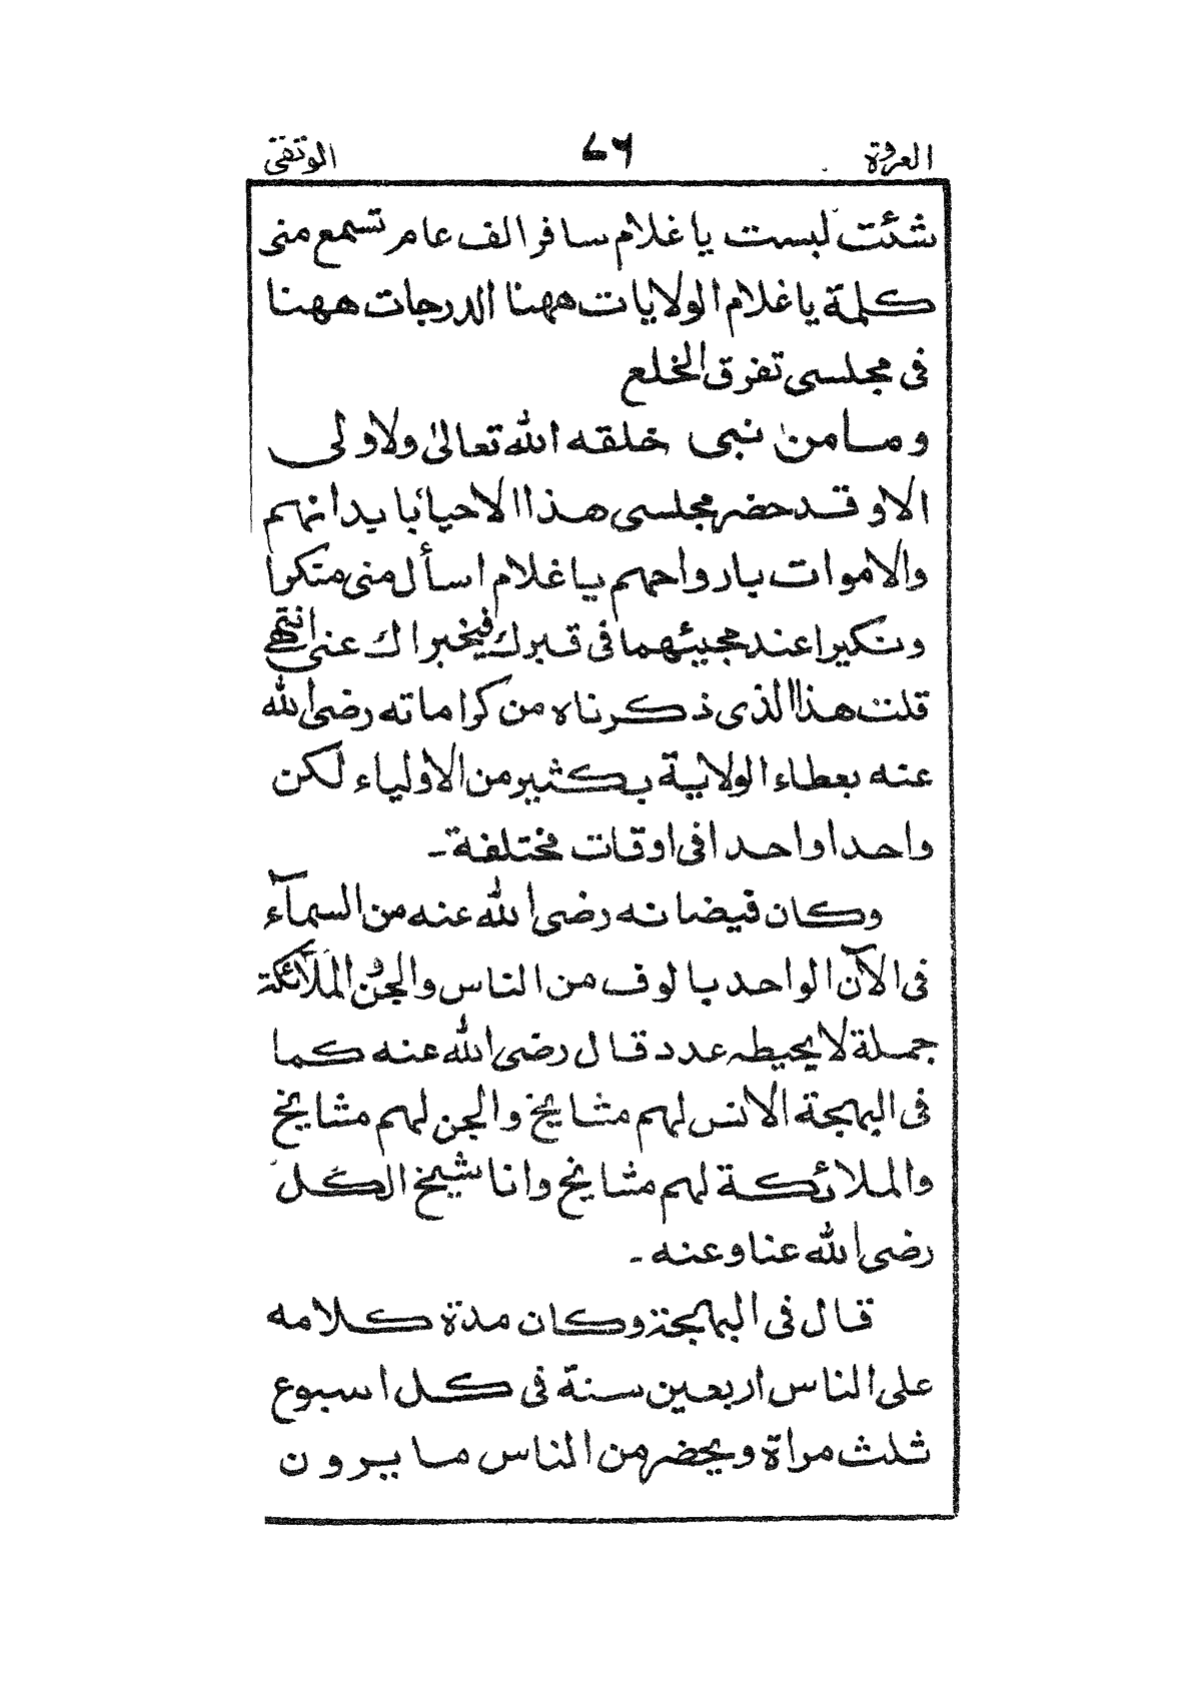 العروة ٧٦ الوثقى
شئت لبست يا غلام سافر الف عام تسمع منى
كلمة يا غلام الولايات ههنا الدرجات ههنا
فى مجلسى تفرق الخلع
وما من نبى خلقه الله تعالىٰ ولا ولى
الا وقد حضر مجلسى هذا الاحيا ئبا بدانهم
والاموات بارواحهم يا غلام اسأل منى متكرا
ونكيرا عند مجيئهما فى قبرك فيخبراك عنى انتهى
قلت هذا الذى ذكرناه من كراماته رضى الله
عنه بعطاء الولاية بكثير من الاولياء لكن
واحدا واحدا فى اوقات مختلفة ـ
وكان فيضانه رضى الله عنه من السمآء
فى الآن الواحد بالوف من الناس والجن والملآئكة
جملة لا يحيطه عدد قال رضى الله عنه كما
فى البهجة الانس لهم مشايخ والجن لهم مشايخ
والملائكة لهم مشايخ وانا شيخ الكل
رضى الله عنا وعنه ـ
قال فى البهجة وكان مدة كلامه
على الناس اربعين سنة فى كل اسبوع
ثلث مراة ويحضر من الناس ما يرون